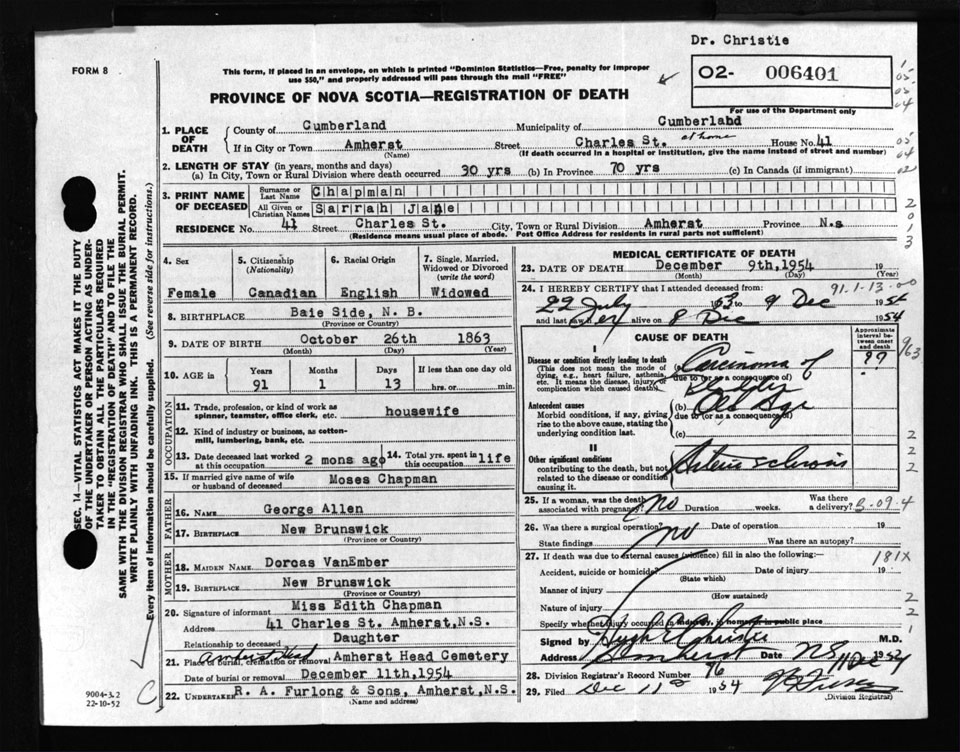 Dr. Christie
FORM 8
This form, if placed in an envelope, on which is printed "Dominion Statistics—Free, penalty for improper
use $50," and properly addressed will pass through the mail "FREE"
02- 006401
For use of the Department only
PROVINCE OF NOVA SCOTIA—REGISTRATION OF DEATH
1. PLACE OF DEATH
County of Cumberland Municipality of Cumberland
If in City or Town Amherst Street Charles St. at home House No. 41
(Name) (If death occurred in a hospital or institution, give the name instead of street and number)
2. LENGTH OF STAY (in years, months and days)
(a) In City, Town or Rural Division where death occurred 30 yrs (b) In Province 70 yrs (c) In Canada (if immigrant)
3. PRINT NAME OF DECEASED
Surname or Last Name Chapman
All Given or Christian Names Sarrah Jane
RESIDENCE No. 41 Street Charles St. City, Town or Rural Division Amherst Province N.s
(Residence means usual place of abode. Post Office Address for residents in rural parts not sufficient)
4. Sex 5. Citizenship (Nationality) 6. Racial Origin 7. Single, Married, Widowed or Divorced (write the word)
Female Canadian English Widowed
8. BIRTHPLACE Baie Side, N. B.
(Province or Country)
9. DATE OF BIRTH October 26th 1863
(Month) (Day) (Year)
10. AGE in Years Months Days If less than one day old
91 1 13 hrs. or min.
OCCUPATION
11. Trade, profession, or kind of work as spinner, teamster, office clerk, etc. housewife
12. Kind of industry or business, as cotton-mill, lumbering, bank, etc.
13. Date deceased last worked at this occupation 2 mons ago 14. Total yrs. spent in this occupation life
15. If married give name of wife or husband of deceased Moses Chapman
FATHER
16. NAME George Allen
17. BIRTHPLACE New Brunswick
(Province or Country)
MOTHER
18. MAIDEN NAME Dorcas VanEmber
19. BIRTHPLACE New Brunswick
(Province or Country)
20. Signature of informant Miss Edith Chapman
Address 41 Charles St. Amherst,N.S.
Relationship to deceased Daughter
21. Place of burial, cremation or removal Amherst Head Cemetery
Amherst Head
Date of burial or removal December 11th,1954
22. UNDERTAKER R. A. Furlong & Sons, Amherst,N.S.
(NAME AND ADDRESS)
MEDICAL CERTIFICATE OF DEATH
23. DATE OF DEATH December 9th,1954 19
(Month) (Day) (Year)
24. I HEREBY CERTIFY that I attended deceased from: 91.1-13-00
22 July 1953 to 9 Dec 1954
and last saw her alive on 8 Dec 1954
CAUSE OF DEATH
Approximate interval between onset and death
I
Disease or condition directly leading to death
(This does not mean the mode of dying, e.g., heart failure, asthenia, etc. It means the disease, injury, or complication which caused death).
Carcinoma of ??
due to (or as a consequence of)
Antecedent causes
Morbid conditions, if any, giving rise to the above cause, stating the underlying condition last.
(b) Old Age
due to (or as a consequence of)
(c)
II
Other significant conditions
contributing to the death, but not related to the disease or condition causing it.
Arteriosclerosis
25. If a woman, was the death associated with pregnancy? no Duration weeks. Was there a delivery?
26. Was there a surgical operation? no Date of operation 19
State findings Was there an autopsy?
27. If death was due to external causes (violence) fill in also the following:—
181X
Accident, suicide or homicide? Date of injury 19
(State which)
Manner of injury
(How sustained)
Nature of injury
Specify whether injury occurred in industry, in home or in public place
Signed by Hugh E Christie M.D.
Address Amherst N.S. Date 11 Dec 1954
28. Division Registrar's Record Number 76
29. Filed Dec 11 1954
(Division Registrar)
SEC. 14—VITAL STATISTICS ACT MAKES IT THE DUTY
OF THE UNDERTAKER OR PERSON ACTING AS UNDER-
TAKER TO OBTAIN ALL THE PARTICULARS REQUIRED
IN THE "REGISTRATION OF DEATH" AND TO FILE THE
SAME WITH THE DIVISION REGISTRAR WHO SHALL ISSUE THE BURIAL PERMIT.
WRITE PLAINLY WITH UNFADING INK. THIS IS A PERMANENT RECORD.
Every item of information should be carefully supplied. (See reverse side for instructions.)
9004-3.2
22-10-52